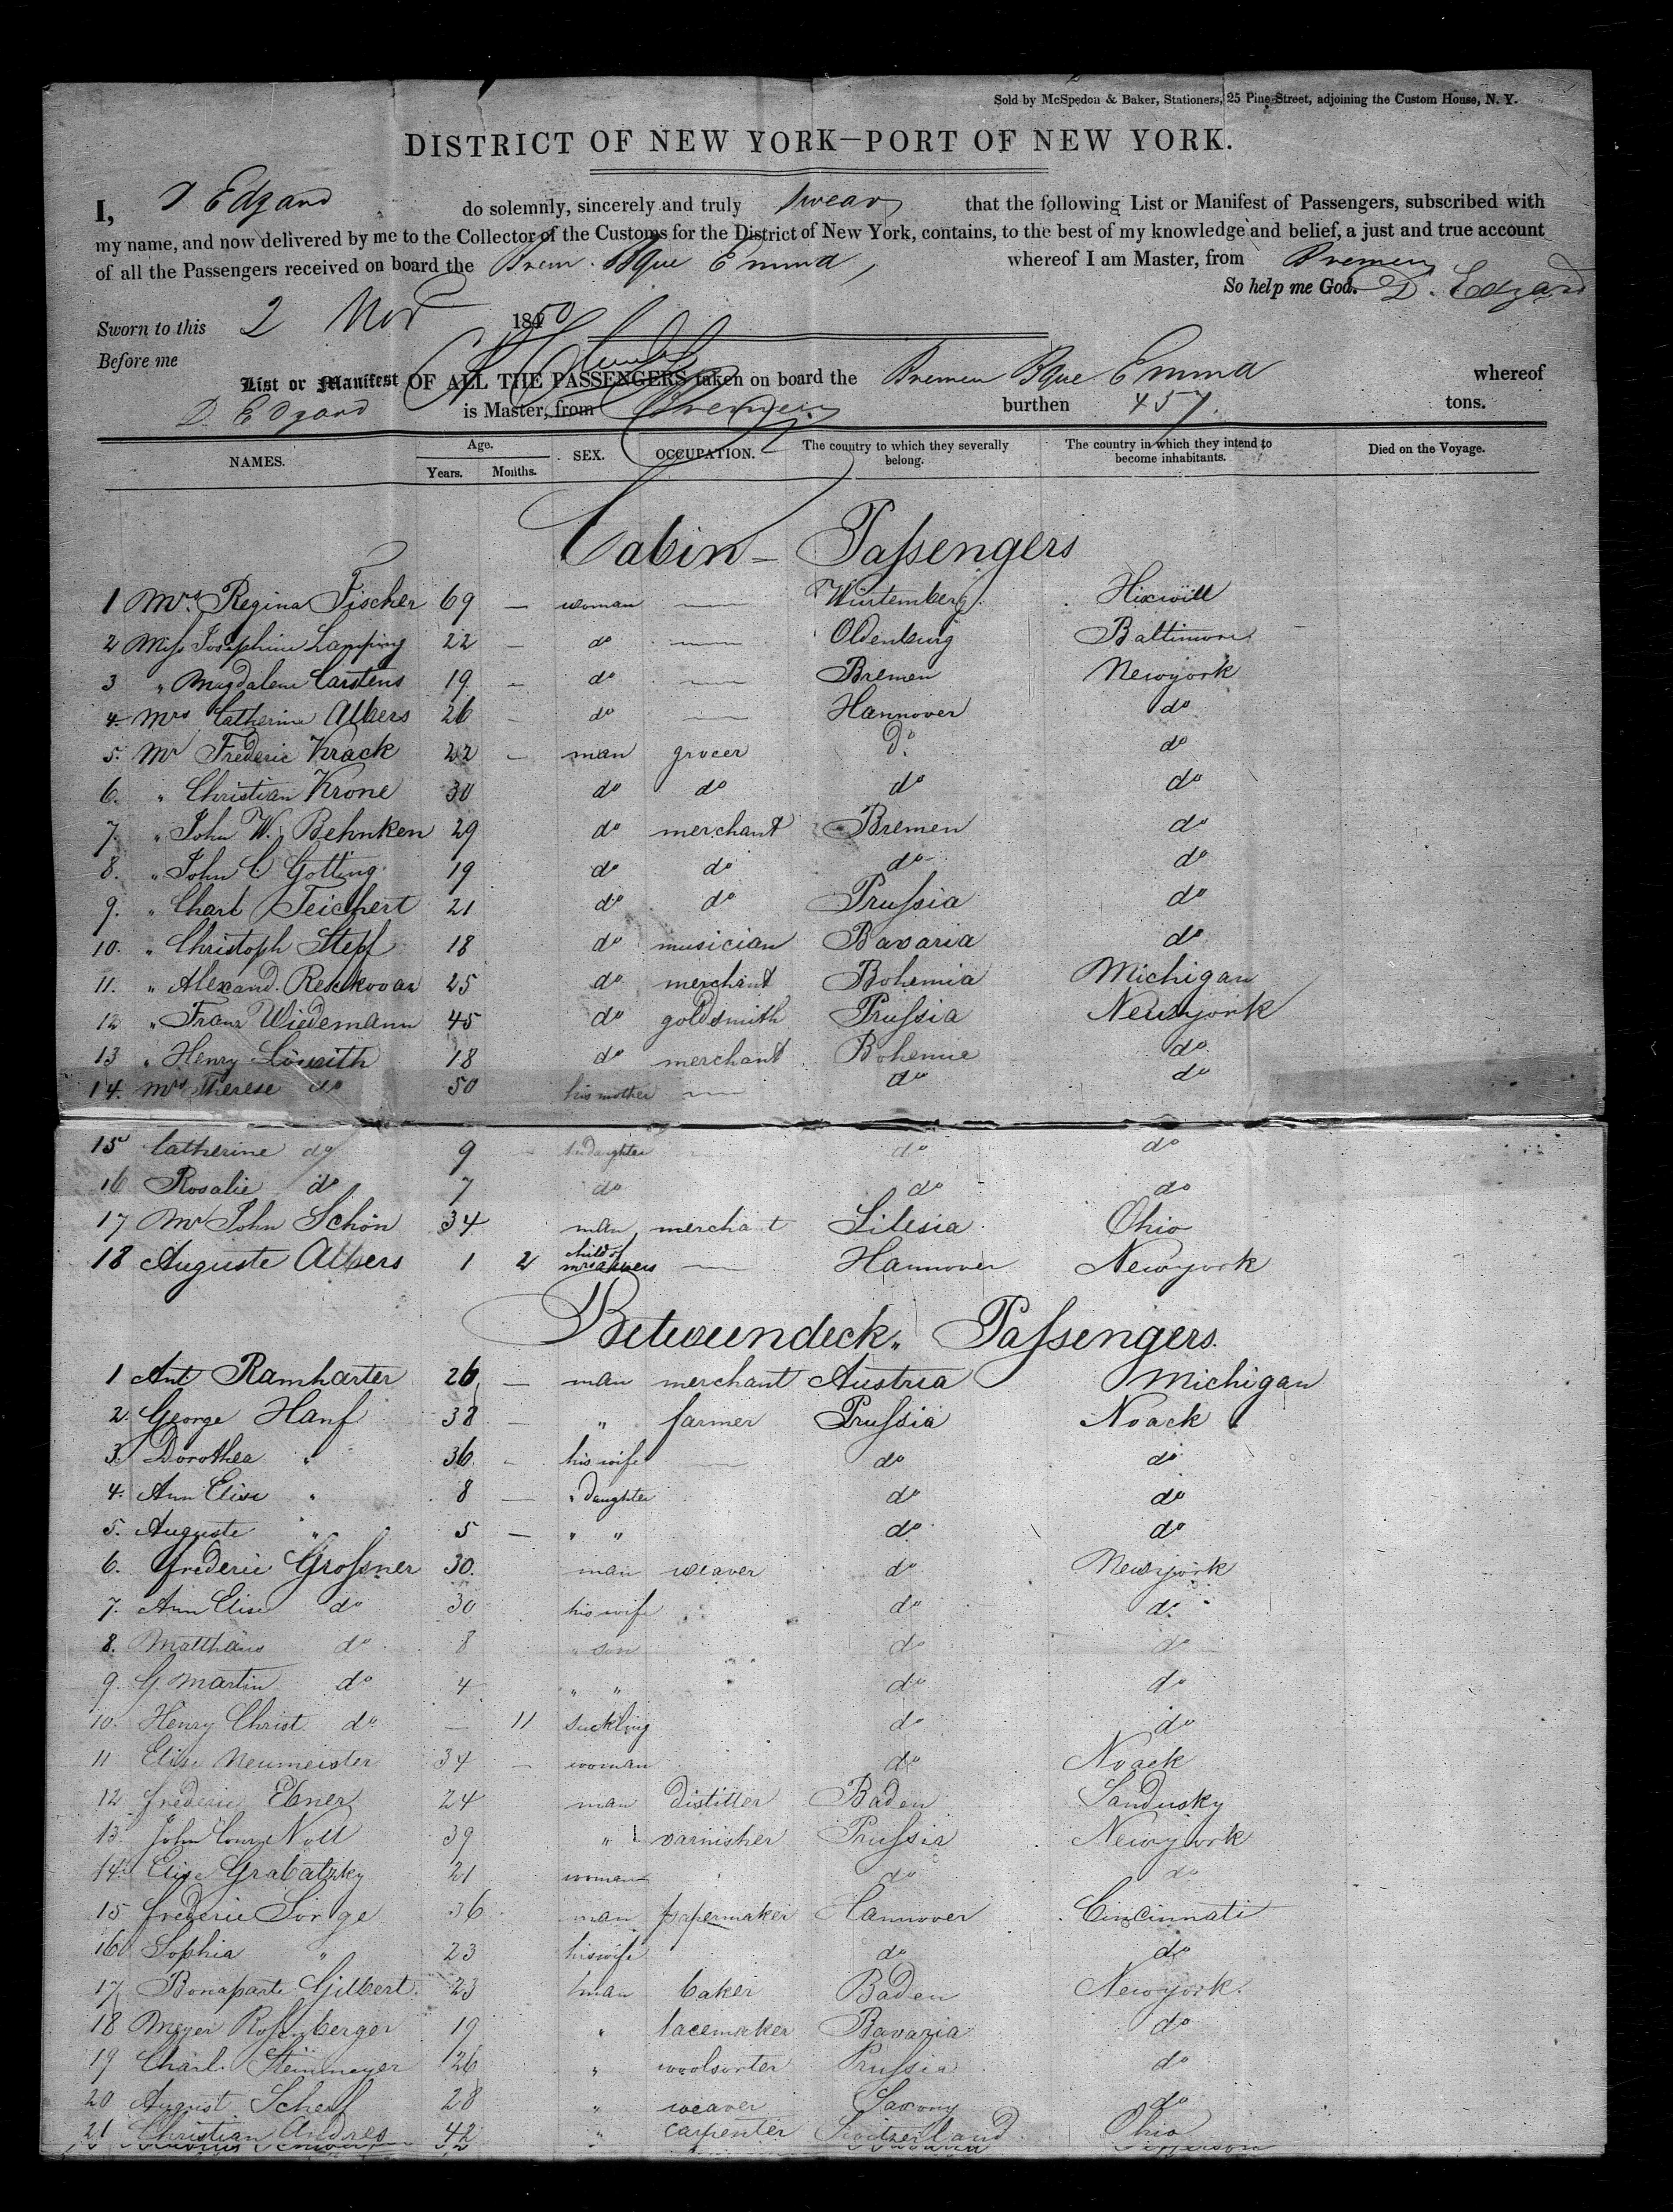 Sold by McSpedon & Baker, Stationers, 25 Pine Street, adjoining the Custom House, N. Y.
DISTRICT OF NEW YORK—PORT OF NEW YORK.
I, D Edzard do solemnly, sincerely and truly swear that the following List or Manifest of Passengers, subscribed with
my name, and now delivered by me to the Collector of the Customs for the District of New York, contains, to the best of my knowledge and belief, a just and true account
of all the Passengers received on board the Brem. Bque Emma, whereof I am Master, from Bremen
So help me God. D. Edzard
Sworn to this 2 Nov 1850
Before me
List or Manifest OF ALL THE PASSENGERS taken on board the Bremen Bque Emma whereof
D. Edzard is Master, from Bremen burthen 457. tons.
NAMES. Age. Years. Months. SEX. OCCUPATION. The country to which they severally belong. The country in which they intend to become inhabitants. Died on the Voyage.
Cabin- Passengers
1 Mrs. Regina Fischer 69 — woman — Würtemberg.
2 Miss Josephine Lamping 22 — do — Oldenburg Baltimore
3 " Magdalene Carstens 19 — do — Bremen Newyork
4. Mrs Catherine Albers 26 — do — Hannover do
5. Mr Frederic Krack 22 — man grocer do do
6. " Christian Krone 30 do do do do
7. " John W. Behnken 29 do merchant Bremen do
8. " John C Götting 19 do do do do
9. " Charl Teichert 21 do do Prussia do
10. " Christoph Stepf 18 do musician Bavaria do
11. " Alexand. 25 do merchant Bohemia Michigan
12 " Franz Wiedemann 45 do goldsmith Prussia Newyork
13 " Henry 18 do merchant Bohemie do
14. Mrs Therese do 50 his mother — do do
15 Catherine do 9 daughter do do
16 Rosalie do 7 do do do
17 Mr John Schön 34 man merchant Silesia Ohio
18 Auguste Albers 1 2 child of Mrs Albers — Hannover Newyork
Betweendeck. Passengers.
1 Ant Ramharter 26 — man merchant Austria Michigan
2. George Hanf 38 — " farmer Prussia Noack
3. Dorothea " 36. - his wife — do do
4. Ann Elise " 8 — " daughter do do
5. Auguste " 5 — " " do do
6. Frederic Grossner 30. man weaver do Newyork
7. Ann Elise do 30 his wife do do
8. Matthäus do 8 " son do do
9. G. Martin do 4 " " do do
10. Henry Christ. do — 11 suckling do do
11 Elise Neumeister 34 — woman do Noack
12 Frederic Ebner 24 man distiller Baden Sandusky
13. John Conr. Noll 39 " varnisher Prussia Newyork
14. Elise Grabatzky 21 woman do do
15 Frederic Sorge 36 man papermaker Hannover Cincinnati
16 Sophia " 23 his wife do do
17 Bonaparte Gilbert. 23 man baker Baden Newyork.
18 Meyer Rosenberger 19 " lacemaker Bavaria do
19 Charl. Steinmeyer 26 " woolsorter Prussia do
20 August Scherf 28 " weaver Saxony do
21 Christian Andres 42 " carpenter Switzerland Ohio